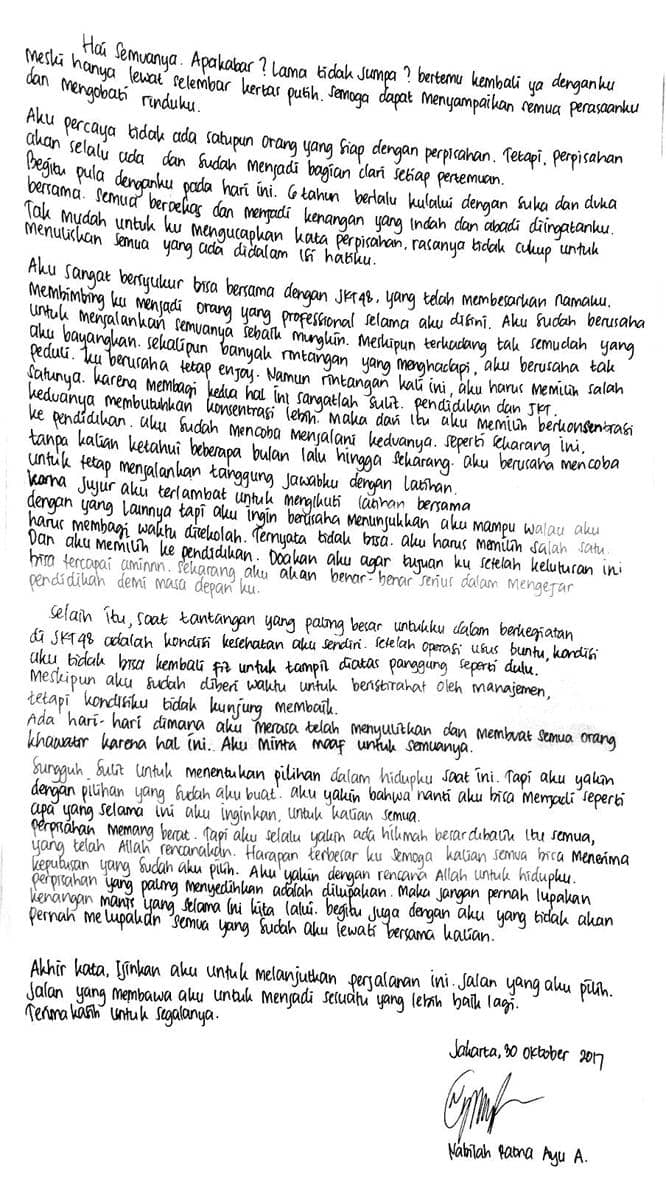 Hai semuanya. Apakabar? Lama tidak jumpa? bertemu kembali ya denganku
meski hanya lewat selembar kertas putih. semoga dapat menyampaikan semua perasaanku
dan mengobati rinduku.
Aku percaya tidak ada satupun orang yang siap dengan perpisahan. Tetapi, perpisahan
akan selalu ada dan sudah menjadi bagian dari setiap pertemuan.
Begitu pula denganku pada hari ini. 6 tahun berlalu kulalui dengan suka dan duka
bersama. Semua berbekas dan menjadi kenangan yang indah dan abadi diingatanku.
Tak mudah untuk ku mengucapkan kata perpisahan, rasanya tidak cukup untuk
menuliskan semua yang ada didalam isi hatiku.
Aku sangat bersyukur bisa bersama dengan JKT48, yang telah membesarkan namaku.
Membimbing ku menjadi orang yang professional selama aku disini. Aku sudah berusaha
untuk menjalankan semuanya sebaik mungkin. Meskipun terkadang tak semudah yang
aku bayangkan. sekalipun banyak rintangan yang menghadapi, aku berusaha tak
peduli. ku berusaha tetap enjoy. Namun rintangan kali ini, aku harus memilih salah
satunya. karena membagi kedua hal ini sangatlah sulit. pendidikan dan JKT.
keduanya membutuhkan konsentrasi lebih. Maka dari itu aku memilih berkonsentrasi
ke pendidikan. aku sudah mencoba menjalani keduanya. seperti sekarang ini,
tanpa kalian ketahui beberapa bulan lalu hingga sekarang. aku berusaha mencoba
untuk tetap menjalankan tanggung jawabku dengan latihan.
karna jujur aku terlambat untuk mengikuti latihan bersama
dengan yang lainnya tapi aku ingin berusaha menunjukkan aku mampu walau aku
harus membagi waktu disekolah. Ternyata tidak bisa. aku harus memilih salah satu.
Dan aku memilih ke pendidikan. Doakan aku agar tujuan ku setelah kelulusan ini
bisa tercapai aminnn. sekarang aku akan benar-benar serius dalam mengejar
pendidikan demi masa depan ku.
selain itu, saat tantangan yang paling besar untukku dalam berkegiatan
di JKT48 adalah kondisi kesehatan aku sendiri. setelah operasi usus buntu, kondisi
aku tidak bisa kembali fit untuk tampil diatas panggung seperti dulu.
Meskipun aku sudah diberi waktu untuk beristirahat oleh manajemen,
tetapi kondisiku tidak kunjung membaik.
Ada hari-hari dimana aku merasa telah menyulitkan dan membuat semua orang
khawatir karena hal ini. Aku minta maaf untuk semuanya.
Sungguh sulit untuk menentukan pilihan dalam hidupku saat ini. Tapi aku yakin
dengan pilihan yang sudah aku buat. aku yakin bahwa nanti aku bisa menjadi seperti
apa yang selama ini aku inginkan, untuk kalian semua.
perpisahan memang berat. Tapi aku selalu yakin ada hikmah besar dibalik itu semua,
yang telah Allah rencanakan. Harapan terbesar ku semoga kalian semua bisa menerima
keputusan yang sudah aku pilih. Aku yakin dengan rencana Allah untuk hidupku.
perpisahan yang paling menyedihkan adalah dilupakan. Maka jangan pernah lupakan
kenangan manis yang selama ini kita lalui. begitu juga dengan aku yang tidak akan
pernah melupakan semua yang sudah aku lewati bersama kalian.
Akhir kata, Ijinkan aku untuk melanjutkan perjalanan ini. Jalan yang aku pilih.
Jalan yang membawa aku untuk menjadi sesuatu yang lebih baik lagi.
Terima kasih untuk segalanya.
Jakarta, 30 oktober 2017
Nabilah Ratna Ayu A.